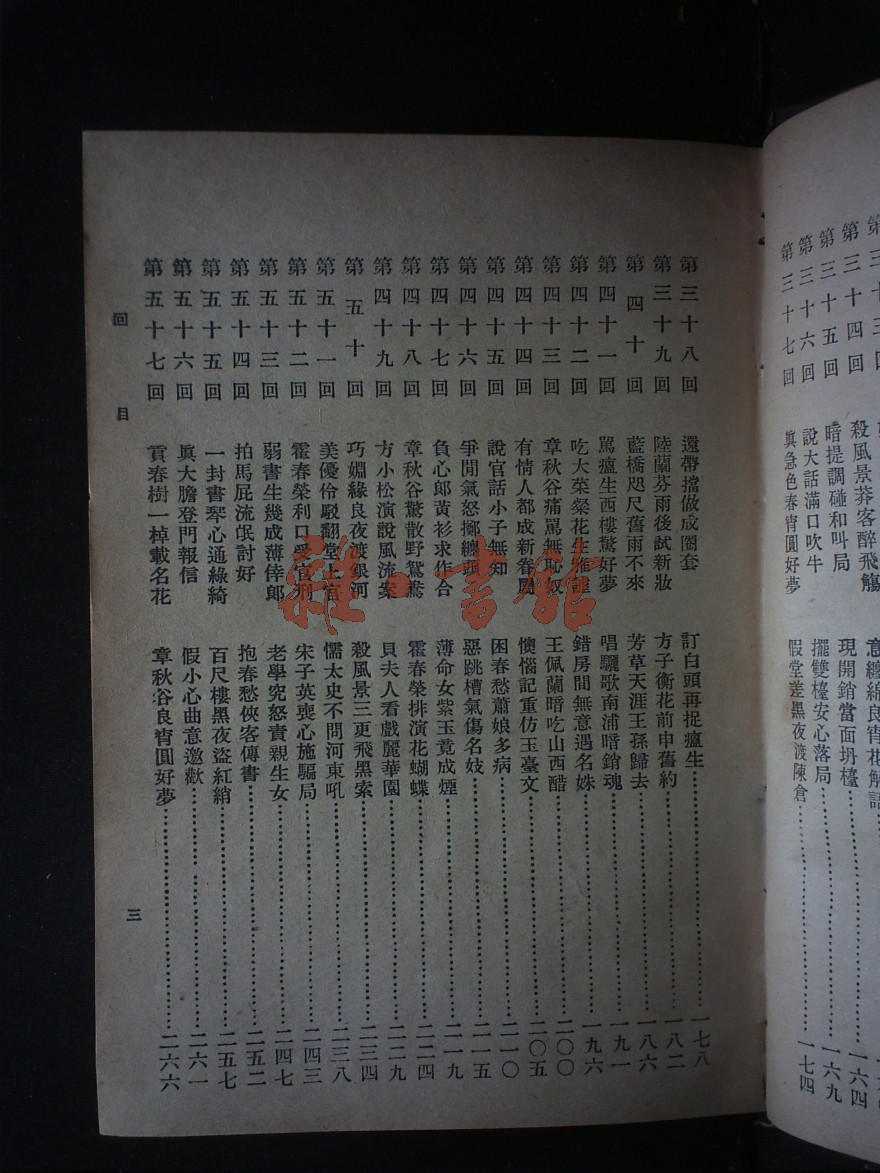 第三十四回
殺風景莽客醉飛觴
意纏綿良宵花解語
第三十五回
暗提調碰和叫局
現開銷當面坍檯
一六四
第三十六回
說大話滿口吹牛
擺雙檯安心落局
一六九
第三十七回
眞急色春宵圓好夢
假堂差黑夜渡陳倉
一七四
第三十八回 還帶擋做成圈套 訂白頭再捉瘟生 一七八
第三十九回 陸蘭芬雨後試新妝 方子衡花前申舊約 一八二
第四十回 藍橋咫尺舊雨不來 芳草天涯王孫歸去 一八六
第四十一回 罵瘟生西樓驚好夢 唱驪歌南浦暗銷魂 一九一
第四十二回 吃大菜粲花生 錯房間無意遇名姝 一九六
第四十三回 章秋谷痛罵無恥奴 王佩蘭暗吃山西醋 二〇〇
第四十四回 有情人都成新眷屬 懊惱記重仿玉臺文 二〇五
第四十五回 說官話小子無知 困春愁蕭娘多病 二一〇
第四十六回 爭閒氣怒擲纏頭 惡跳槽氣傷名妓 二一五
第四十七回 負心郎黃衫求作合 薄命女紫玉竟成煙 二一九
第四十八回 章秋谷驚散野鴛鴦 霍春榮排演花蝴蝶 二二四
第四十九回 方小松演說風流案 貝夫人看戲麗華園 二二九
第五十回 巧姻緣良夜渡銀河 殺風景三更飛黑索 二三四
第五十一回 美優伶駁翻堂上官 懦太史不問河東吼 二三八
第五十二回 霍春榮利口受官刑 宋子英喪心施騙局 二四三
第五十三回 弱書生幾成薄倖郎 老學究怒責親生女 二四七
第五十四回 拍馬屁流氓討好 抱春愁俠客傳書 二五二
第五十五回 一封書琴心通綠綺 百尺樓黑夜盜紅綃 二五七
第五十六回 眞大膽登門報信 假小心曲意邀歡 二六一
第五十七回 貢春樹一棹載名花 章秋谷良宵圓好夢 二六六
回目
三
雜·書館